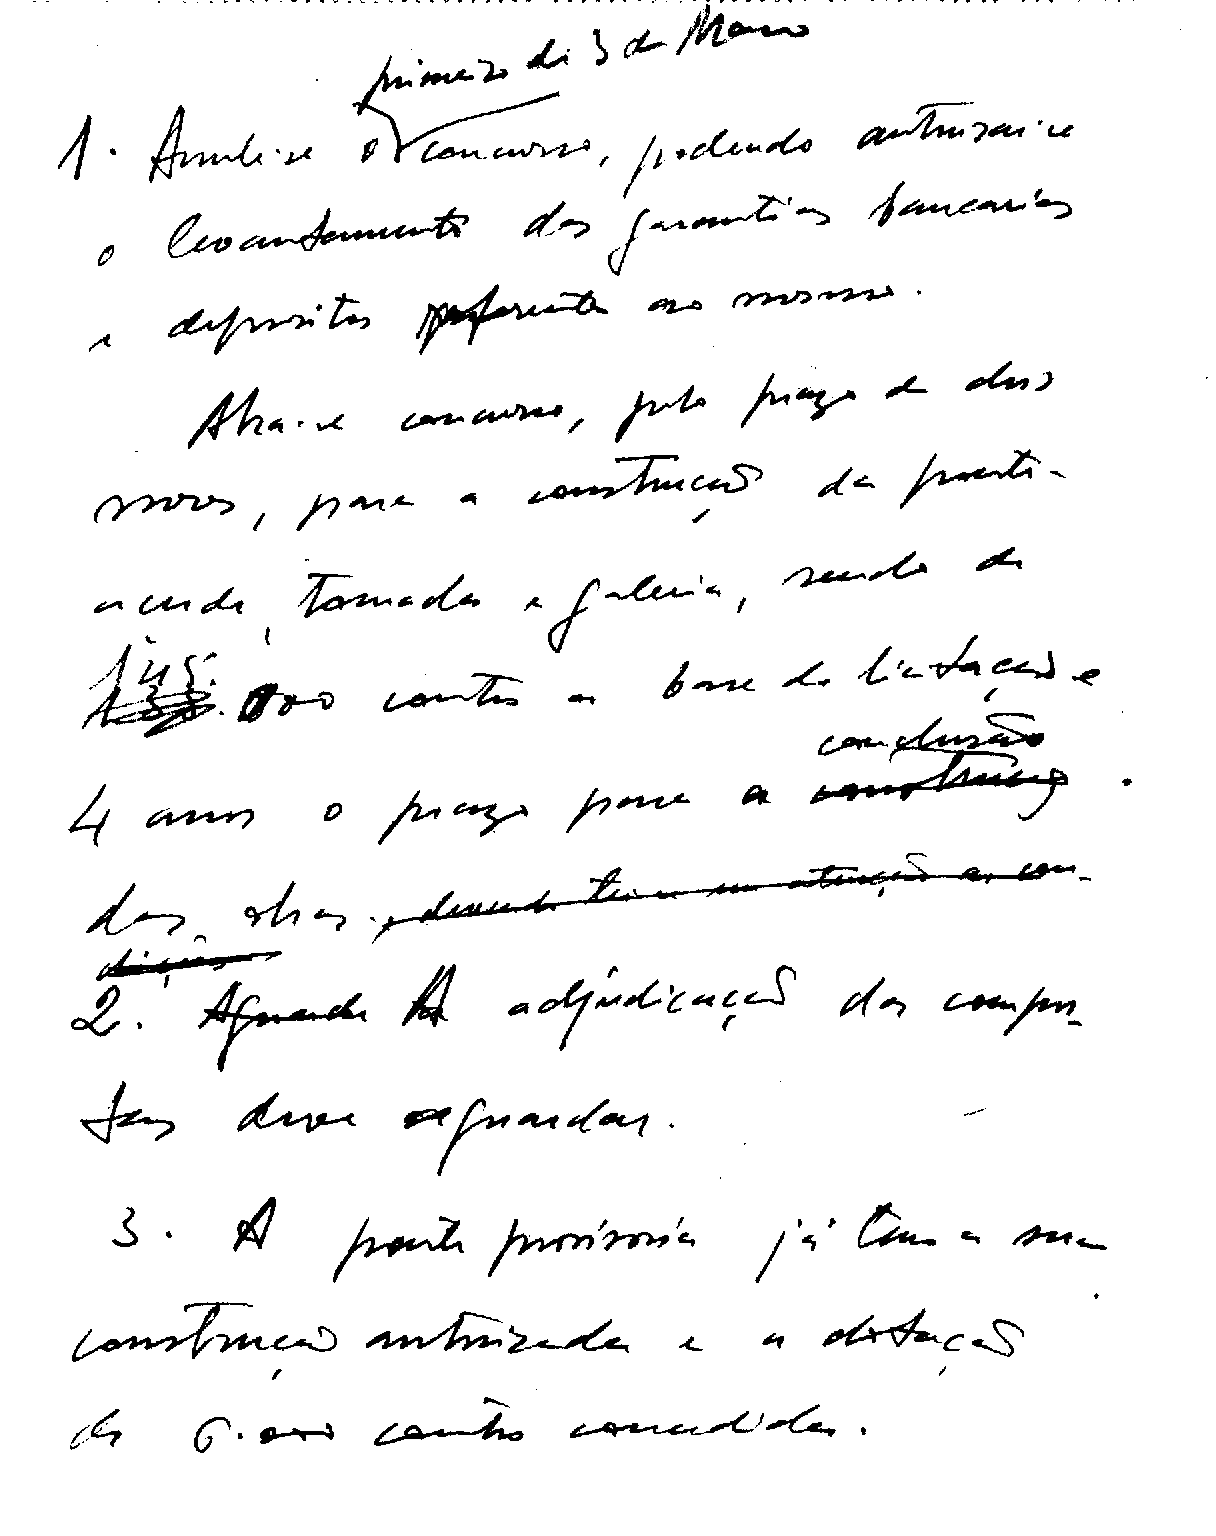 primeiro de 3 de Março
1. Anule-se o concurso, podendo autorizar-se
o levantamento das garantias bancarias
e depositos referente ao mesmo.
Abra-se concurso, pelo prazo de dois
meses, para a construção da ponte-
açude, tomadas e galeria, sendo de
145.000 contos a base de licitação e
4 anos o prazo para a conclusão
das obras.
2. A adjudicação das compor-
tas deve aguardar.
3. A ponte provisoria já tem a sua
construção autorizada e a dotação
de 6.000 contos concedida.